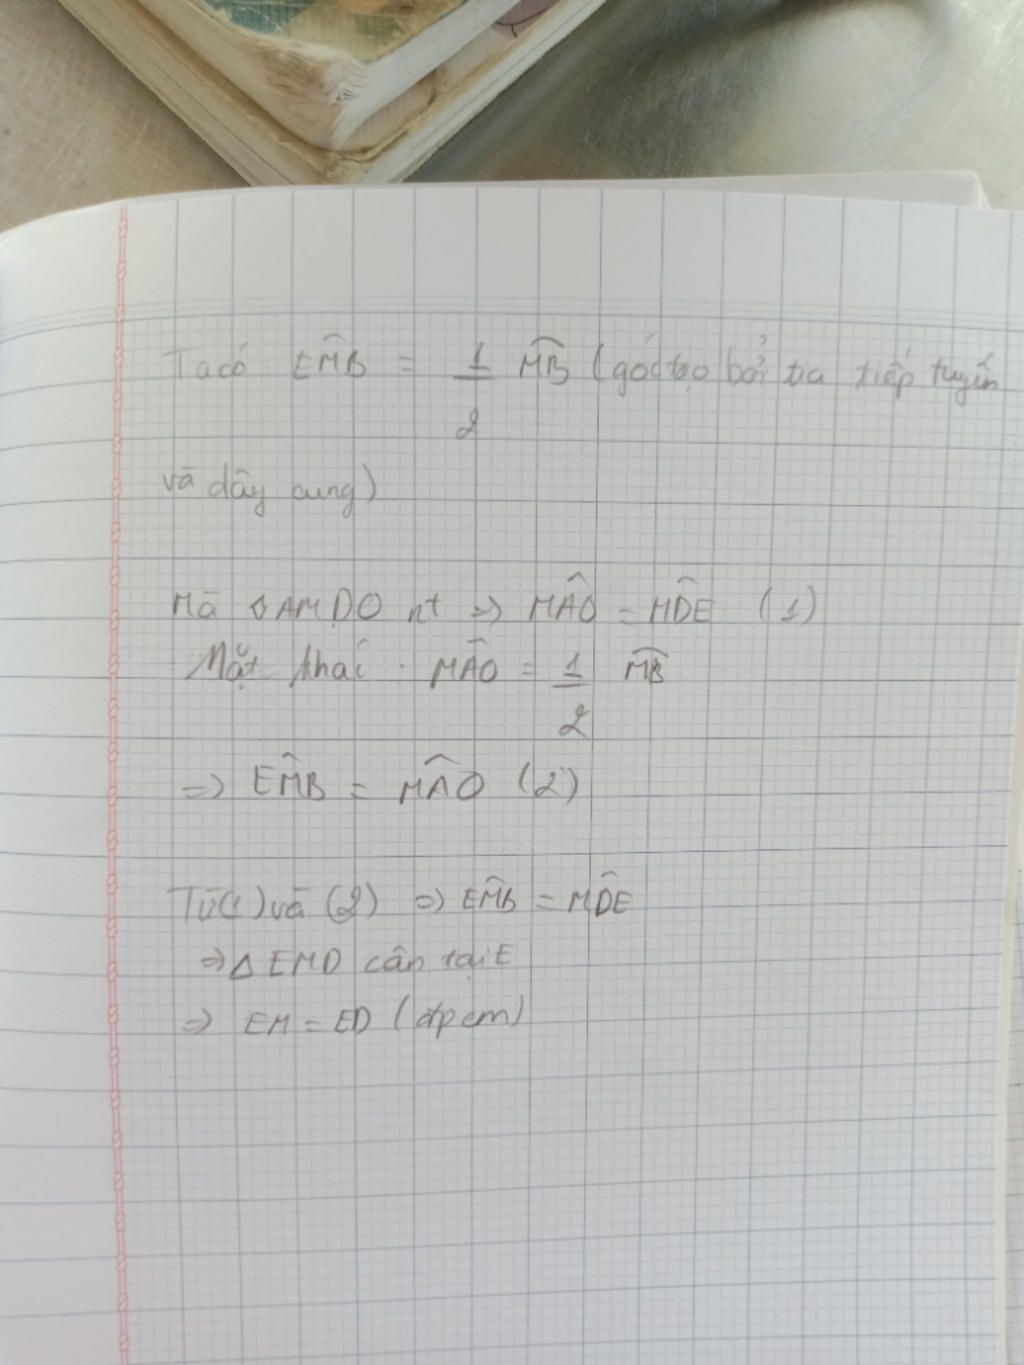 Ta có EM̂B = 1/2 M͡B (góc tạo bởi tia tiếp tuyến
và dây cung)
Mà ◊AMDO nt => MÂO = MD̂E (1)
Mặt khác MÂO = 1/2 M͡B
=> EM̂B = MÂO (2)
Từ (1) và (2) => EM̂B = MD̂E
=> Δ EMD cân tại E
=> EM = ED (đpcm)